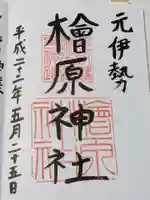 元伊勢
檜原神社
平成二十二年五月二十五日